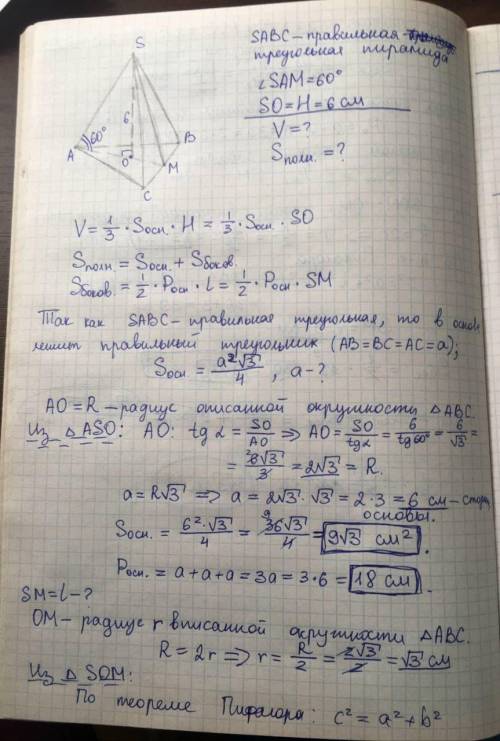 SABC – правильная
треугольная пирамида
∠SAM = 60°
SO = H = 6 см
V = ?
Sполн. = ?
S
6
60°
A
B
O
M
C
V = 1/3 · Sосн. · H = 1/3 · Sосн. · SO
Sполн. = Sосн. + Sбоков.
Sбоков. = 1/2 · Pосн · l = 1/2 · Pосн · SM
Так как SABC – правильная треугольная, то в основ
лежит правильный треугольник (AB = BC = AC = a);
Sосн = a²√3/4 , a – ?
AO = R – радиус описанной окружности △ABC.
Из △ASO: AO: tg α = SO/AO ⟹ AO = SO/tg α = 6/tg 60° = 6/√3 =
= 6√3/3 = 2√3 = R.
a = R√3 ⟹ a = 2√3 · √3 = 2 · 3 = 6 см – сторон
основы.
Sосн. = 6² · √3/4 = 36√3/4 = 9√3 см².
Pосн. = a + a + a = 3a = 3 · 6 = 18 см.
SM = l – ?
OM – радиус r вписанной окружности △ABC.
R = 2r ⟹ r = R/2 = 2√3/2 = √3 см
Из △ SOM:
По теореме Пифагора: c² = a² + b²